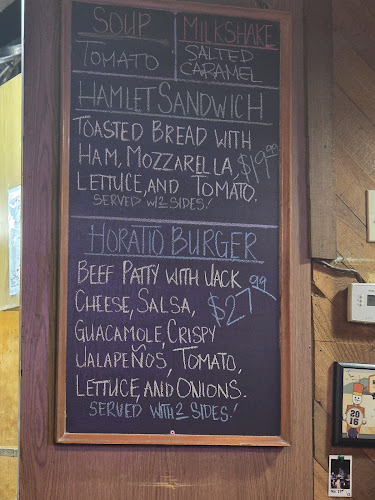 SOUP
TOMATO
MILKSHAKE
SALTED
CARAMEL
HAMLET SANDWICH
TOASTED BREAD WITH
HAM, MOZZARELLA,
LETTUCE, AND TOMATO.
$19.99
SERVED W/ 2 SIDES!
HORATIO BURGER
BEEF PATTY WITH JACK
CHEESE, SALSA,
$27.99
GUACAMOLE, CRISPY
JALAPEÑOS, TOMATO,
LETTUCE, AND ONIONS.
SERVED WITH 2 SIDES!
2016